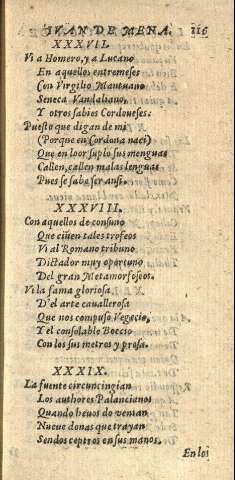 IVAN DE MENA. 116
XXXVII.
Vi a Homero, y a Lucano
En aquellos entremeses
Con Virgilio Mantuano
Seneca Vandaliano,
Y otros sabios Cordoueses.
Puesto que digan de mi
(Porque en Cordoua naci)
Que en loor suplo sus menguas
Callen, callen malas lenguas
Pues se sabe ser ansi.
XXXVIII.
Con aquellos de consuno
Que ciñen tales trofeos
Vi al Romano tribuno
Dictador muy oportuno
Del gran Metamorfoseos.
Vi la fama gloriosa
D'el arte cauallerosa
Que nos compuso Vegecio,
Y el consolable Boecio
Con los sus metros y prosa.
XXXIX.
La fuente circuncingian
Los authores Palancianos
Quando heuos do venian
Nueue donas que trayan
Sendos ceptros en sus manos.
En los